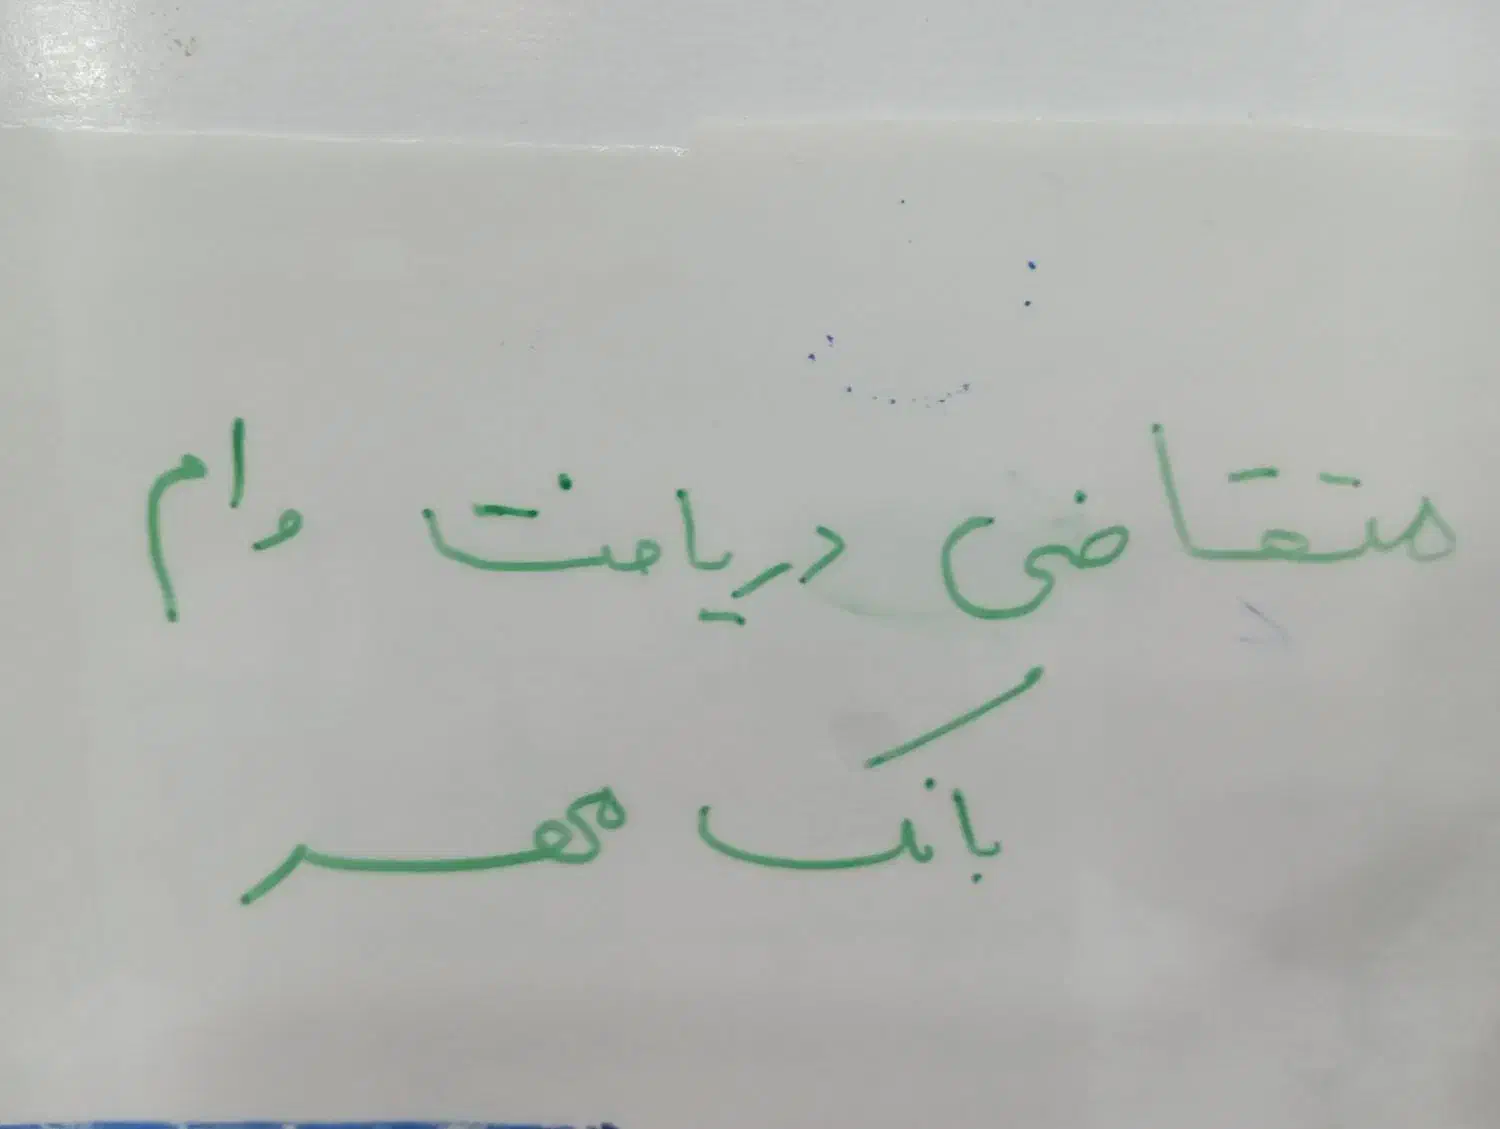 متقاضی دریافت وام
بانک مهر